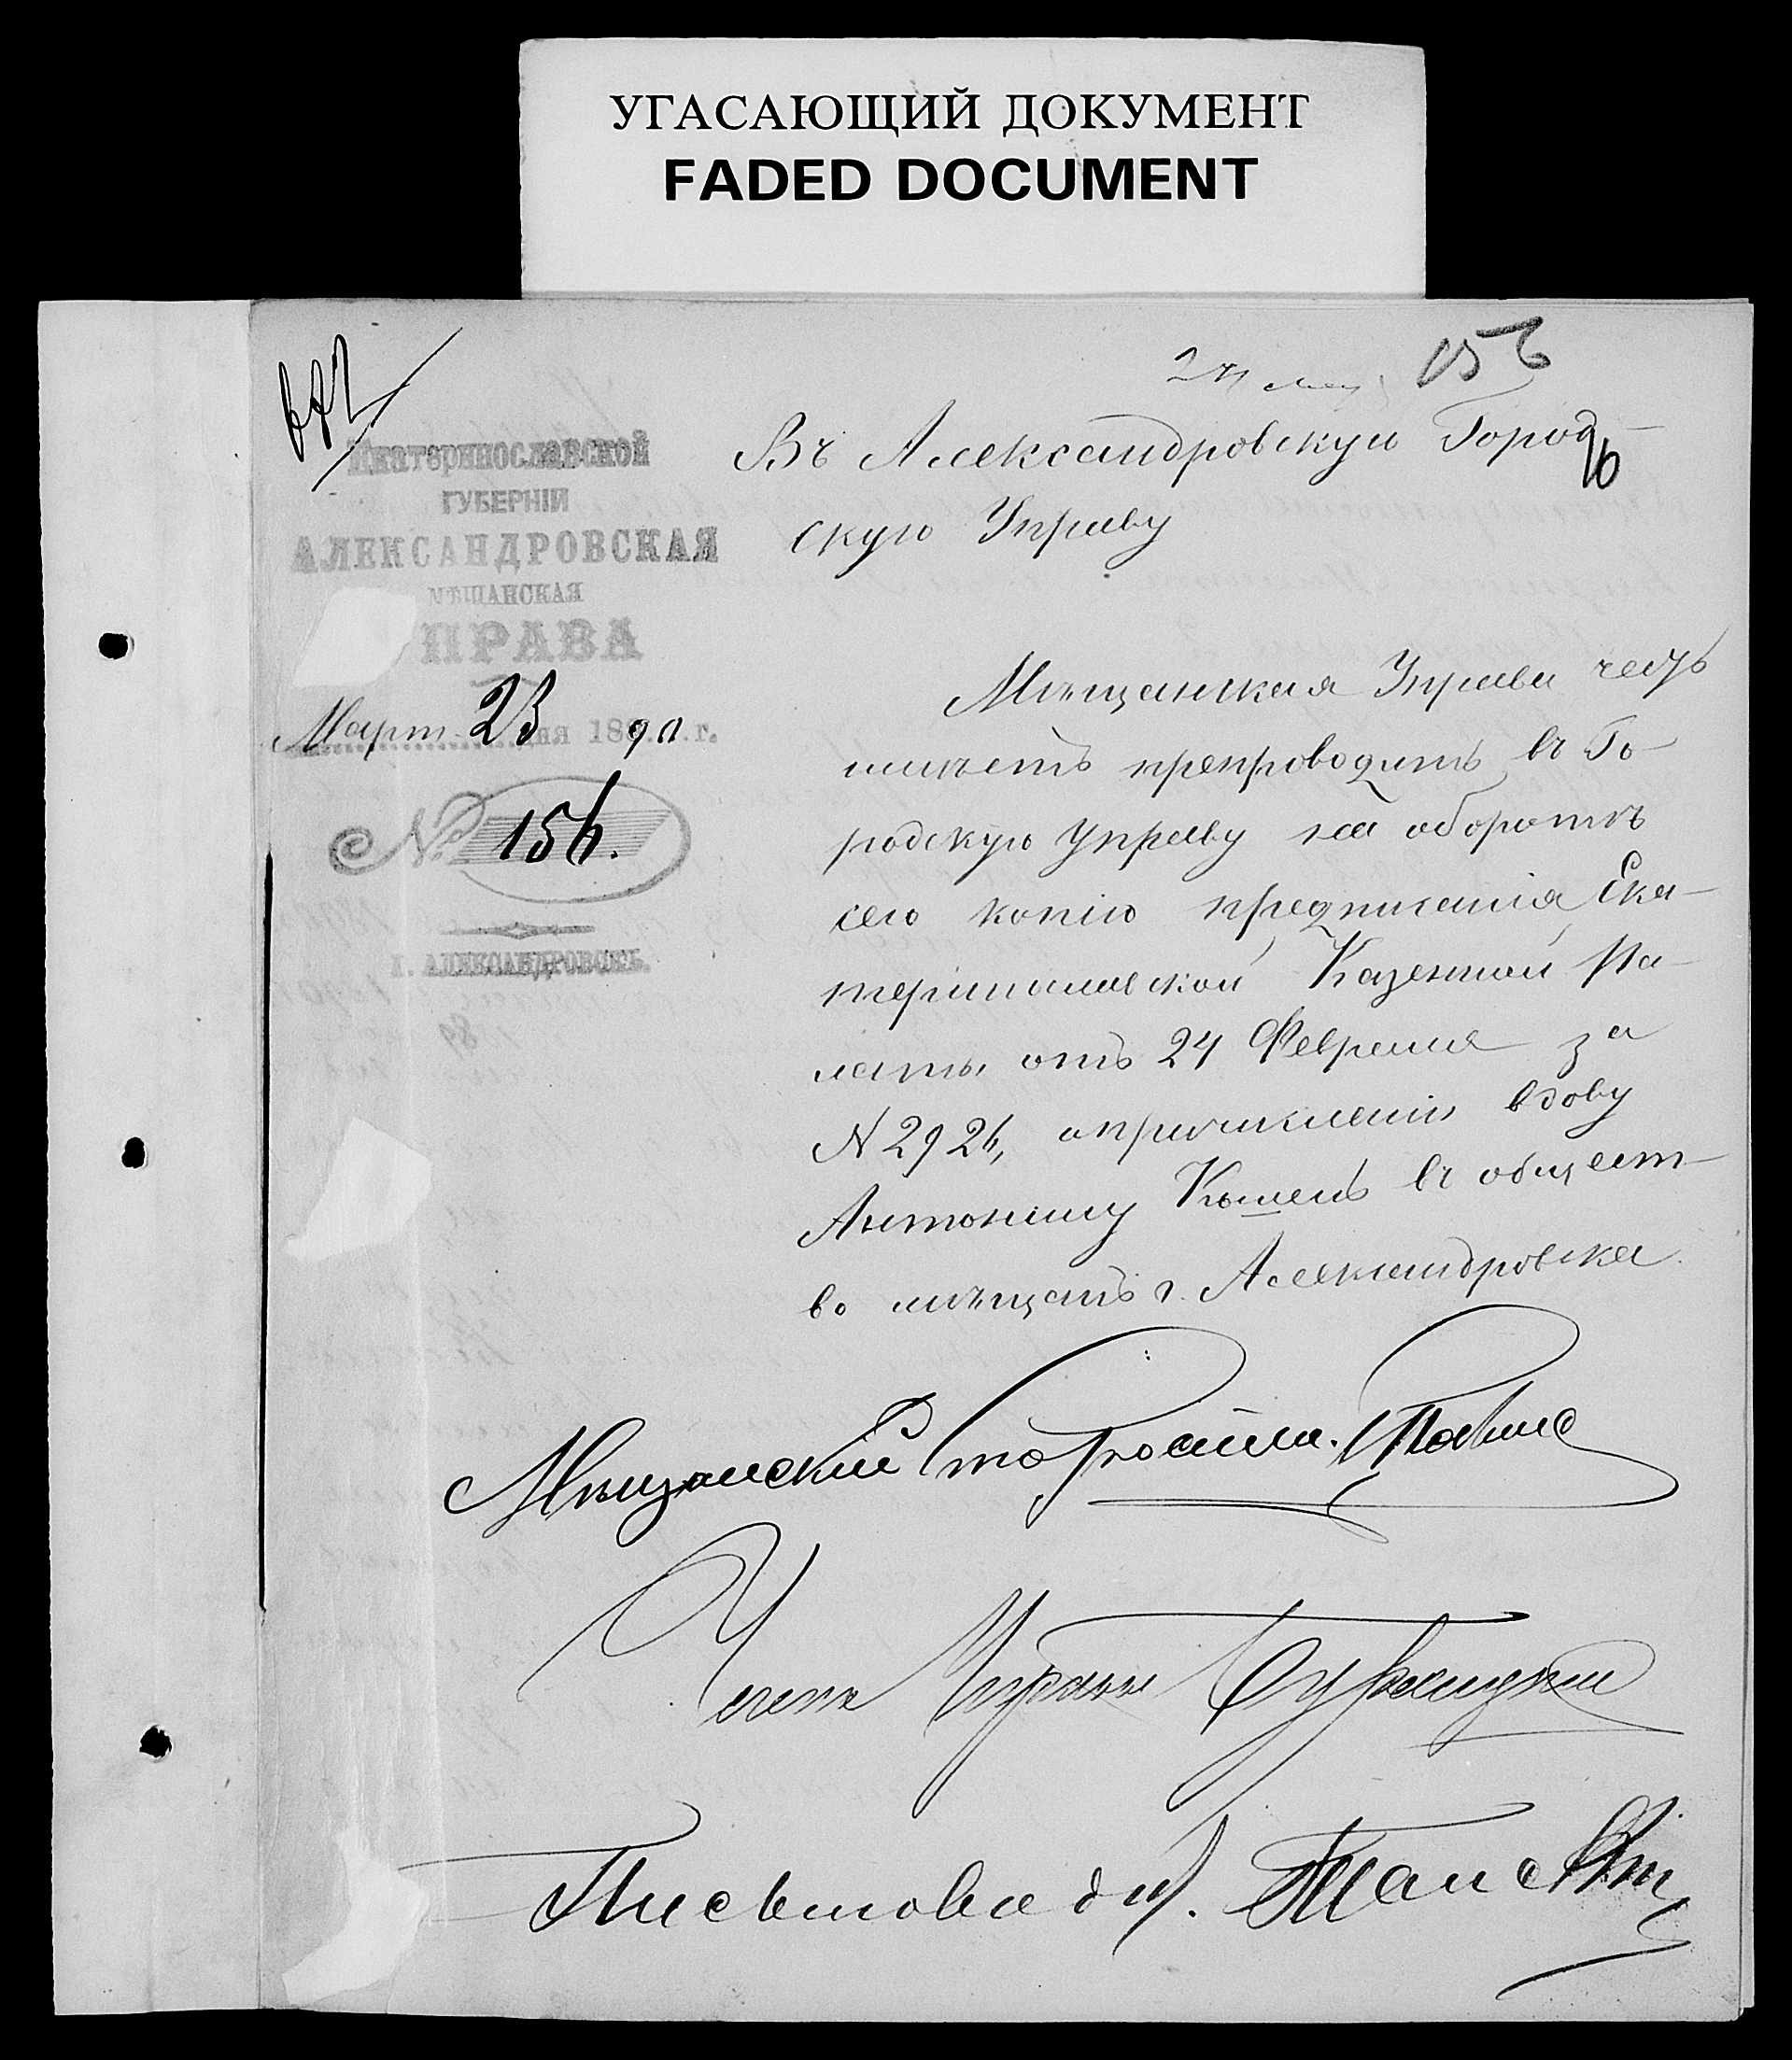 УГАСАЮЩИЙ ДОКУМЕНТ
FADED DOCUMENT
156
Екатеринославской
ГУБЕРНІИ
АЛЕКСАНДРОВСКАЯ
МѢЩАНСКАЯ
УПРАВА
Март 23 дня 1890 г.
№ 156.
г. АЛЕКСАНДРОВСКЪ.
Въ Александровскую Город-
скую Управу
Мѣщанская Управа честь
имѣетъ препроводить въ Го-
родскую Управу на оборотѣ
сего копію предписанія Ека-
теринославской Казенной Па-
латы отъ 24 Февраля за
N 2926, о причисленіи вдову
Антонину въ общест-
во мѣщанъ г. Александровска.
Мѣщанскій Староста
Членъ Управы
Письмоводит.